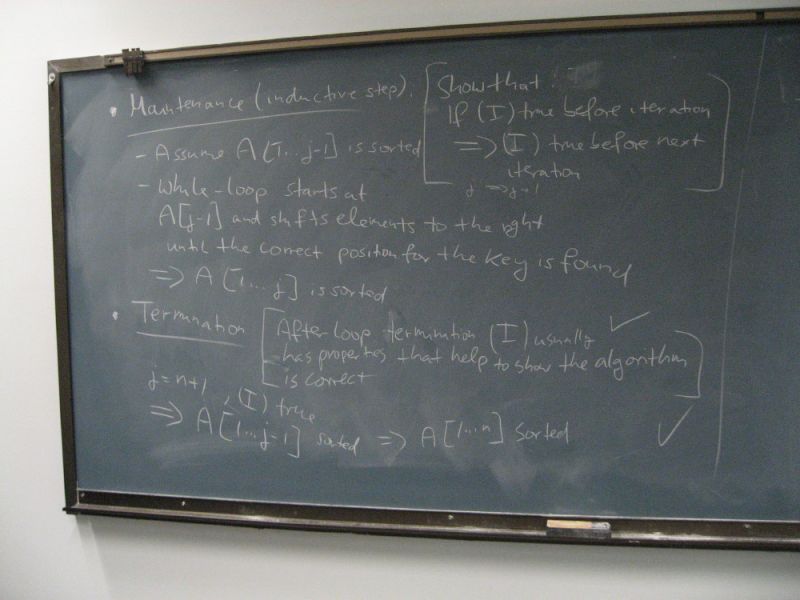 • Maintenance (inductive step).
[Show that
If (I) true before iteration
=> (I) true before next
iteration]
- Assume A[1...j-1] is sorted
- While-loop starts at
A[j-1] and shifts elements to the right
until the correct position for the key is found
=> A[1...j] is sorted
• Termination
[After loop termination (I) usually ✓
has properties that help to show the algorithm
is correct]
j = n+1, (I) true
=> A[1...j-1] sorted => A[1...n] sorted ✓